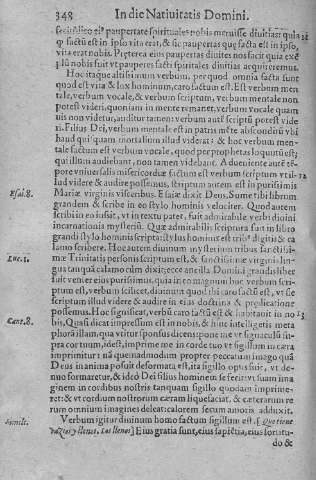 348 In die Natiuitatis Domini.
paupertate spirituales nobis meruisse diuitias: quia
factũ est in ipso vita erat, & sic paupertas que facta est in ipso,
vita erat nobis. Propterea eius paupertas diuites nos facit quia
nobis fuit vt pauperes facti spirituales diuitias acquireremus.
Hoc itaque altissimum verbum, per quod omnia facta sunt
quod est vita & lux hominum, caro factum est. Est verbum men
tale, verbum vocale, & verbum scriptum, verbum mentale non
potest videri, quoniam in mente remanet, verbum vocale quam
uis non videtur, auditur tamen: verbum autẽ scriptũ potest vide
ri. Filius Dei, verbum mentale est in patris mẽte absconditũ vbi
haud quisquam mortalium illud viderat: & hoc verbum men-
tale factum est verbum vocale, quod per prophetas loquutũ est;
qui illum audiebant, non tamen videbant. Adueniente autẽ tẽ-
pore vniuersalis misericordiæ factum est verbum scriptum vt il- 12
lud videre & audire possemus, scriptum autem est in purissimis
Esai. 8. Mariæ virginis visceribus. Esaiæ dixit Deus, Sume tibi librum
grandem & scribe in eo stylo hominis velociter. Quod autem
scribi in eo iussit, vt in textu patet, fuit admirabile verbi diuini
incarnationis mysteriũ. Quæ admirabilis scriptura fuit in libro
grandi stylo hominis scripta: stylus hominis est digitis & ca
lamo scribere. Hoc autem diuinum mysterium tribus sanctissi-
Luc. 1. mæ Trinitatis personis scriptum est, & sanctissimæ virginis lin-
gua tanquã calamo cũm dixit; ecce ancilla Domini grandis liber
fuit venter eius purissimus, quia in eo magnum hoc verbum scri-
ptum est, verbum scilicet, diuinum quod ibi caro factũ est, vt sic
scriptum illud videre & audire in eius doctrina & prædicatione
possemus. Hoc significat, verbũ caro factũ est & habitauit in no 13
Cant. 8. bis, Quasi dicat impressum est in nobis, & huc intelligitis meta
phora illam, qua vtitur sponsus dicens: pone me vt signaculũ su-
pra cor tuum, idest, imprime me in corde tuo vt sigillum in cera
imprimitur: nã quemadmodum propter peccatum imago quã
Deus in anima posuit deformata est, ita sigillo opus fuit, vt de-
nuo formaretur, & ideò Dei filius hominem se fecit vt suam ima
ginem in cordibus nostris tanquam sigillo quodam imprime-
ret: & vt cordium nostrorum cæram liquefaciat, & cæterarum re
rum omnium imagines deleat: calorem secum amoris adduxit.
Simile. Verbum igitur diuinum homo factum sigillum est. [Que tiene
vazios y llenos. Los llenos] Eius gratia sunt, eius sapiẽtia, eius fortitu-
do &